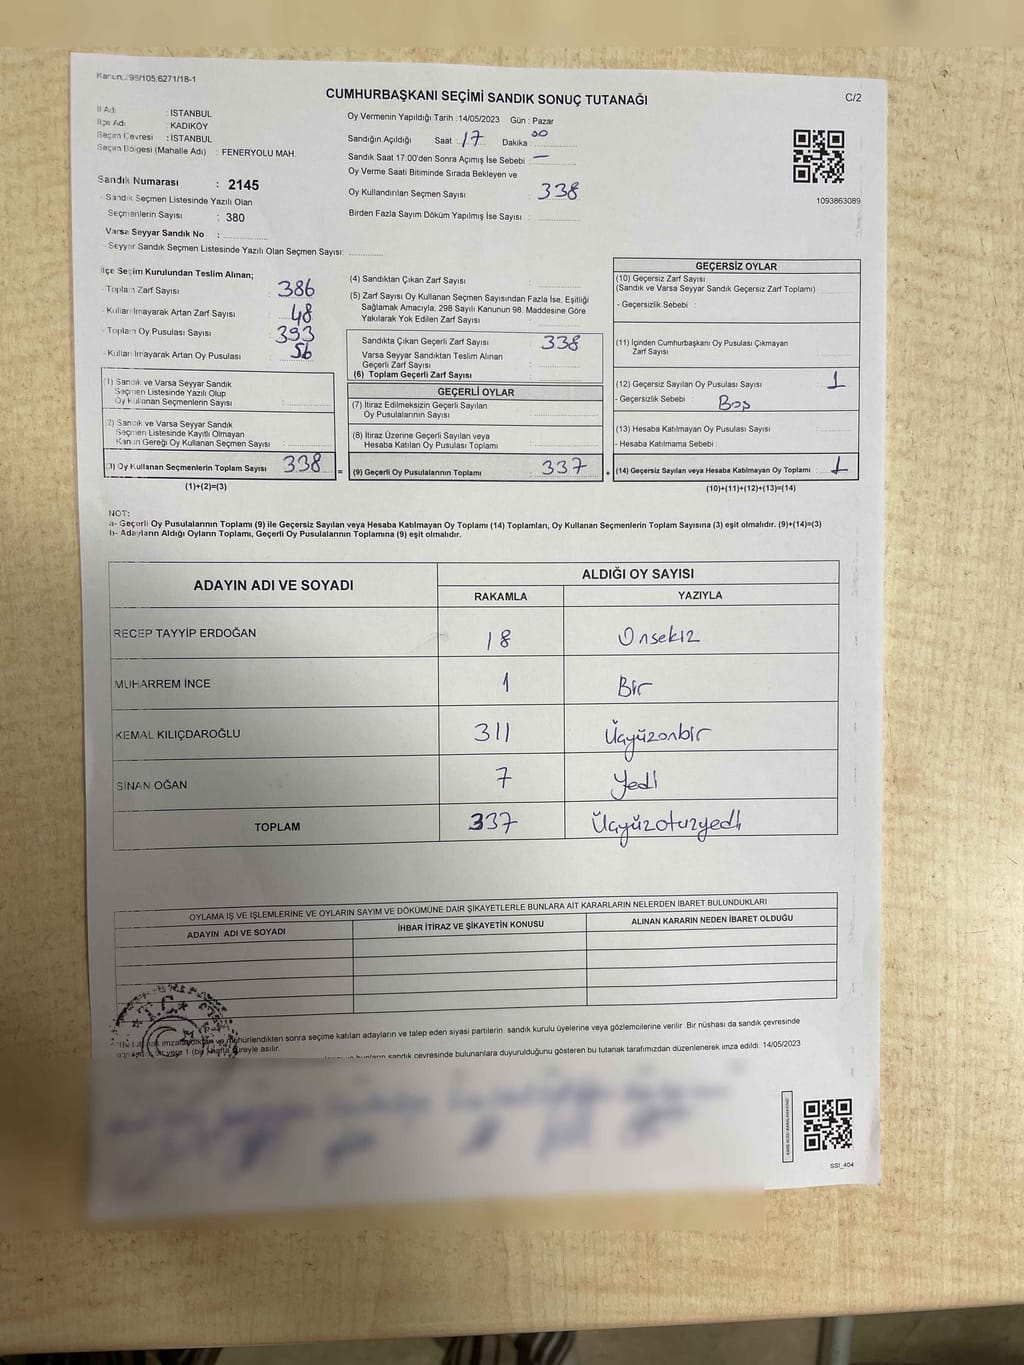 Kanun: 298/105;6271/18-1
CUMHURBAŞKANI SEÇİMİ SANDIK SONUÇ TUTANAĞI
C/2
İl Adı : İSTANBUL
İlçe Adı : KADIKÖY
Seçim Çevresi : İSTANBUL
Seçim Bölgesi (Mahalle Adı) : FENERYOLU MAH.
Sandık Numarası : 2145
Sandık Seçmen Listesinde Yazılı Olan
Seçmenlerin Sayısı : 380
Varsa Seyyar Sandık No :
Seyyar Sandık Seçmen Listesinde Yazılı Olan Seçmen Sayısı:
Oy Vermenin Yapıldığı Tarih :14/05/2023 Gün : Pazar
Sandığın Açıldığı Saat : 17 Dakika : 00
Sandık Saat 17:00'den Sonra Açımış İse Sebebi : —
Oy Verme Saati Bitiminde Sırada Bekleyen ve
Oy Kullandırılan Seçmen Sayısı : 338
Birden Fazla Sayım Döküm Yapılmış İse Sayısı :
1093863089
İlçe Seçim Kurulundan Teslim Alınan;
Toplam Zarf Sayısı : 386
Kullanılmayarak Artan Zarf Sayısı : 48
Toplam Oy Pusulası Sayısı : 393
Kullanılmayarak Artan Oy Pusulası : 56
(1) Sandık ve Varsa Seyyar Sandık
Seçmen Listesinde Yazılı Olup
Oy Kullanan Seçmenlerin Sayısı :
(2) Sandık ve Varsa Seyyar Sandık
Seçmen Listesinde Kayıtlı Olmayan
Kanun Gereği Oy Kullanan Seçmen Sayısı :
(3) Oy Kullanan Seçmenlerin Toplam Sayısı : 338 =
(1)+(2)=(3)
(4) Sandıktan Çıkan Zarf Sayısı :
(5) Zarf Sayısı Oy Kullanan Seçmen Sayısından Fazla İse, Eşitliği
Sağlamak Amacıyla; 298 Sayılı Kanunun 98. Maddesine Göre
Yakılarak Yok Edilen Zarf Sayısı :
Sandıkta Çıkan Geçerli Zarf Sayısı : 338
Varsa Seyyar Sandıktan Teslim Alınan
Geçerli Zarf Sayısı :
(6) Toplam Geçerli Zarf Sayısı :
GEÇERLİ OYLAR
(7) İtiraz Edilmeksizin Geçerli Sayılan
Oy Pusulalarının Sayısı :
(8) İtiraz Üzerine Geçerli Sayılan veya
Hesaba Katılan Oy Pusulası Toplamı :
(9) Geçerli Oy Pusulalarının Toplamı : 337 +
GEÇERSİZ OYLAR
(10) Geçersiz Zarf Sayısı
(Sandık ve Varsa Seyyar Sandık Geçersiz Zarf Toplamı) :
- Geçersizlik Sebebi :
(11) İçinden Cumhurbaşkanı Oy Pusulası Çıkmayan
Zarf Sayısı :
(12) Geçersiz Sayılan Oy Pusulası Sayısı : 1
- Geçersizlik Sebebi : Boş
(13) Hesaba Katılmayan Oy Pusulası Sayısı :
- Hesaba Katılmama Sebebi :
(14) Geçersiz Sayılan veya Hesaba Katılmayan Oy Toplamı : 1
(10)+(11)+(12)+(13)=(14)
NOT:
a- Geçerli Oy Pusulalarının Toplamı (9) ile Geçersiz Sayılan veya Hesaba Katılmayan Oy Toplamı (14) Toplamları, Oy Kullanan Seçmenlerin Toplam Sayısına (3) eşit olmalıdır. (9)+(14)=(3)
b- Adayların Aldığı Oyların Toplamı, Geçerli Oy Pusulalarının Toplamına (9) eşit olmalıdır.
ADAYIN ADI VE SOYADI
ALDIĞI OY SAYISI
RAKAMLA YAZIYLA
RECEP TAYYİP ERDOĞAN 18 Onsekiz
MUHARREM İNCE 1 Bir
KEMAL KILIÇDAROĞLU 311 Üçyüzonbir
SİNAN OĞAN 7 Yedi
TOPLAM 337 Üçyüzotuzyedi
OYLAMA İŞ VE İŞLEMLERİNE VE OYLARIN SAYIM VE DÖKÜMÜNE DAİR ŞİKAYETLERLE BUNLARA AİT KARARLARIN NELERDEN İBARET BULUNDUKLARI
ADAYIN ADI VE SOYADI İHBAR İTİRAZ VE ŞİKAYETİN KONUSU ALINAN KARARIN NEDEN İBARET OLDUĞU
T.C.
sonra seçime katılan adayların ve talep eden siyasi partilerin sandık kurulu üyelerine veya gözlemcilerine verilir. Bir nüshası da sandık çevresinde
süreyle asılır.
bunların sandık çevresinde bulunanlara duyurulduğunu gösteren bu tutanak tarafımızdan düzenlenerek imza edildi. 14/05/2023
SSI_404